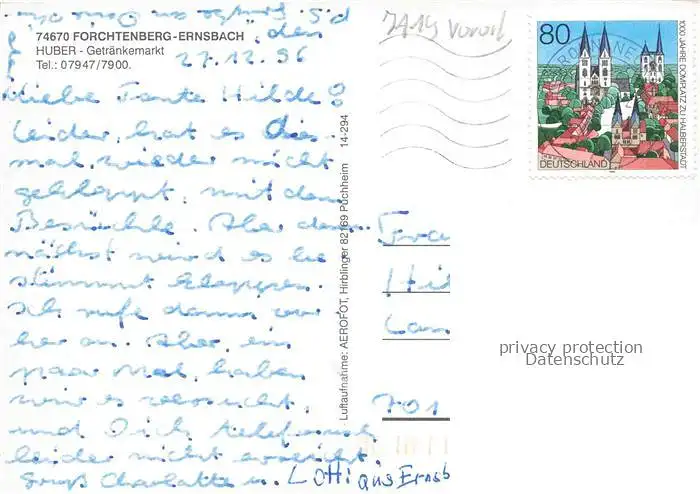 74670 FORCHTENBERG-ERNSBACH
HUBER - Getränkemarkt
Tel.: 07947/7900.
den
27.12.96
Liebe Tante Hilde
Leider hat es dies
mal wieder nicht
geklappt, mit dem
Besuch. Aber dem
nächst wird es be
stimmt klappen.
Ich rufe dann vor
her an. Aber ein
paar Mal haben
wir es versucht,
und Dich telefonisch
leider nicht erreicht
Gruß Charlotte u. Lotti aus Ernsb
Luftaufnahme: AEROFOT, Hirblinger 82169 Puchheim 14-294
7419 Vorort
80
1000 JAHRE DOMPLATZ ZU HALBERSTADT
DEUTSCHLAND
Frau
Hil
701
privacy protection
Datenschutz